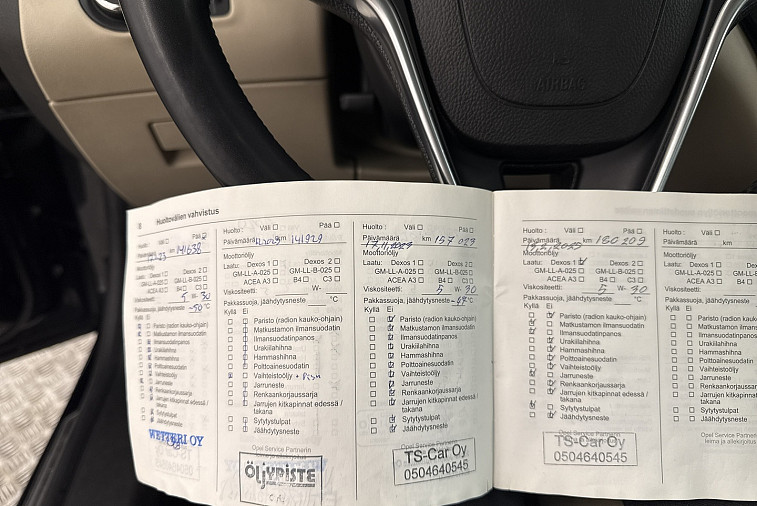 AIRBAG
8 Huoltovälien vahvistus
Huolto: Väli Pää
km 141638
Moottoriöljy
Laatu: Dexos 1 Dexos 2
GM-LL-A-025 GM-LL-B-025
ACEA A3 B4 C3
Viskositeetti: 5 W- 30
Pakkassuoja, jäähdytysneste -50 °C
Kyllä Ei
Paristo (radion kauko-ohjain)
Matkustamon ilmansuodatin
Ilmansuodatinpanos
Urakiilahihna
Hammashihna
Polttoainesuodatin
Vaihteistoöljy
Jarruneste
Renkaankorjaussarja
Jarrujen kitkapinnat edessä /
takana
Sytytystulpat
Jäähdytysneste
WETTERI OY
Huolto: Väli Pää
Päivämäärä km 141929
Moottoriöljy
Laatu: Dexos 1 Dexos 2
GM-LL-A-025 GM-LL-B-025
ACEA A3 B4 C3
Viskositeetti: W-
Pakkassuoja, jäähdytysneste °C
Kyllä Ei
Paristo (radion kauko-ohjain)
Matkustamon ilmansuodatin
Ilmansuodatinpanos
Urakiilahihna
Hammashihna
Polttoainesuodatin
Vaihteistoöljy
Jarruneste
Renkaankorjaussarja
Jarrujen kitkapinnat edessä /
takana
Sytytystulpat
Jäähdytysneste
Opel Service Partnerin
ÖLJYPISTE
Huolto: Väli Pää
Päivämäärä 17.11.2023 km 157 023
Moottoriöljy
Laatu: Dexos 1 Dexos 2
GM-LL-A-025 GM-LL-B-025
ACEA A3 B4 C3
Viskositeetti: 5 W- 30
Pakkassuoja, jäähdytysneste °C
Kyllä Ei
Paristo (radion kauko-ohjain)
Matkustamon ilmansuodatin
Ilmansuodatinpanos
Urakiilahihna
Hammashihna
Polttoainesuodatin
Vaihteistoöljy
Jarruneste
Renkaankorjaussarja
Jarrujen kitkapinnat edessä /
takana
Sytytystulpat
Jäähdytysneste
TS-Car Oy
0504640545
Huolto: Väli Pää
Päivämäärä km 180 209
Moottoriöljy
Laatu: Dexos 1 Dexos 2
GM-LL-A-025 GM-LL-B-025
ACEA A3 B4 C3
Viskositeetti: 5 W- 30
Pakkassuoja, jäähdytysneste °C
Kyllä Ei
Paristo (radion kauko-ohjain)
Matkustamon ilmansuodatin
Ilmansuodatinpanos
Urakiilahihna
Hammashihna
Polttoainesuodatin
Vaihteistoöljy
Jarruneste
Renkaankorjaussarja
Jarrujen kitkapinnat edessä /
takana
Sytytystulpat
Jäähdytysneste
TS-Car Oy
0504640545
Huolto: Väli
Päivämäärä km
Moottoriöljy
Laatu: Dexos 1
GM-LL-A-025
ACEA A3
Viskositeetti:
Pakkassuoja, jäähdytysneste
Kyllä Ei
Paristo (radion kauko
Matkustamon ilmans
Ilmansuodatinpanos
Urakiilahihna
Hammashihna
Polttoainesuodatin
Vaihteistoöljy
Jarruneste
Renkaankorjaussarja
Jarrujen kitkapinnat
takana
Sytytystulpat
Jäähdytysneste
Opel Service Partnerin
leima ja allekirjoitus